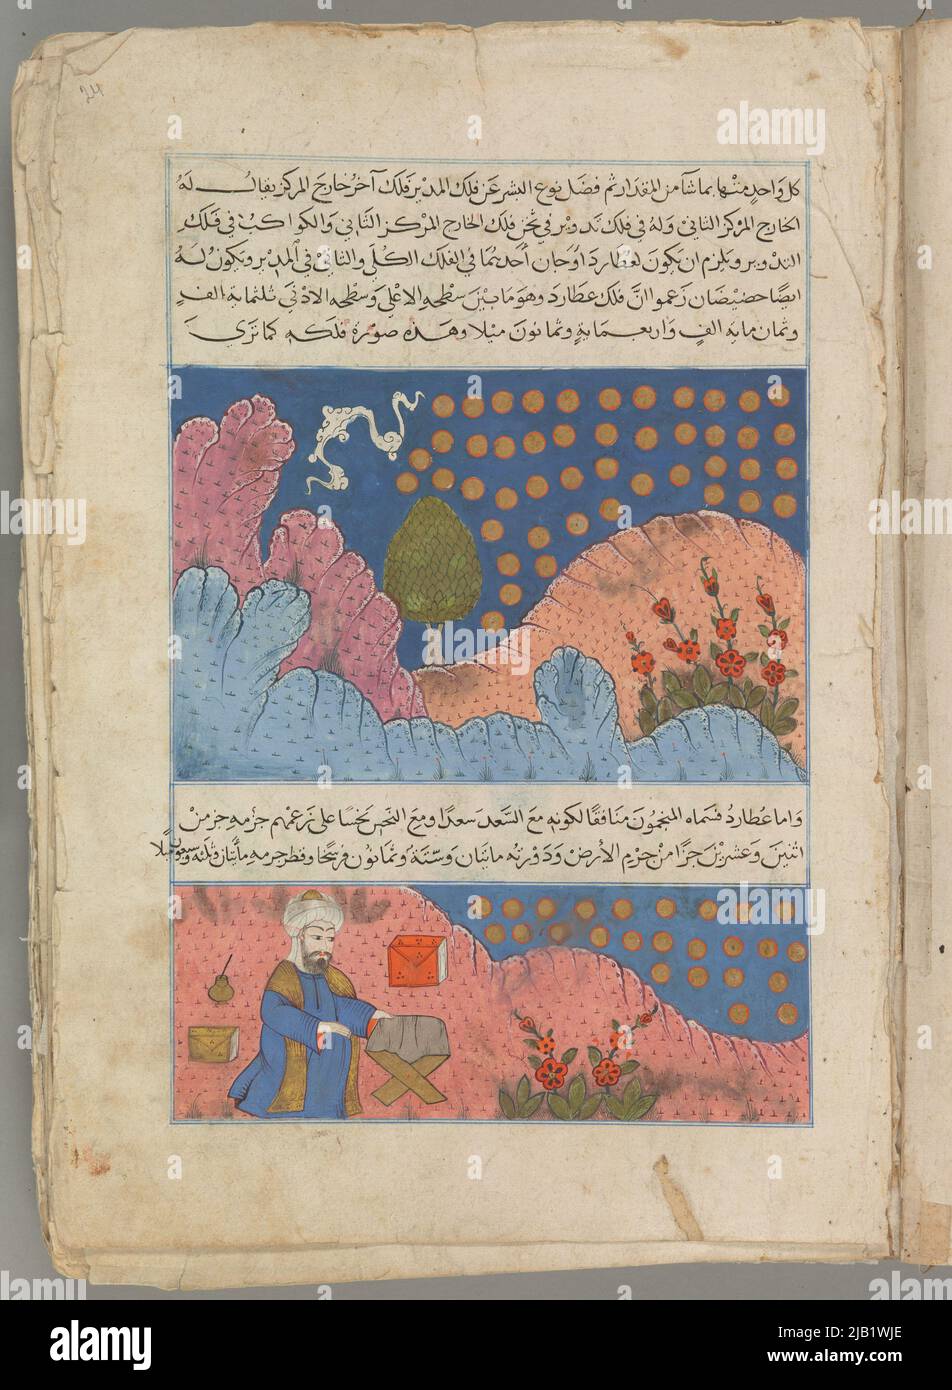 24
كل واحد منها بماشآء من المقدار ثم فصل نوع البشر عن فلك المدير فلك آخر خارج المركز يقال له
الخارج المركز الثاني وله في فلك تدوير في ثخن فلك الخارج المركز الثاني والكواكب في فلك
التدوير ويلزم ان يكون لعطارد اوجان أحدهما في الفلك الكلي والثاني في المدير ويكون له
ايضا حضيضان زعموا انّ فلك عطارد وهو ما بين سطحه الاعلي وسطحه الادني ثلثماية الف
وثمان ماية الف واربعماية وثمانون ميلا وهذه صورة فلكه كما تري
واما عطارد فسماه المنجمون منافقا لكونه مع السعد سعدا ومع النحس نحسا على زعمهم جرمه جزء من
اثنين وعشرين جزءا من جرم الأرض ودورته مايتان وستة وثمانون فرسخا وقطر جرمه مأيتان وثلثة وسبعون ميلا
alamy
a
alamy
Image ID: 2JB1WJE
www.alamy.com